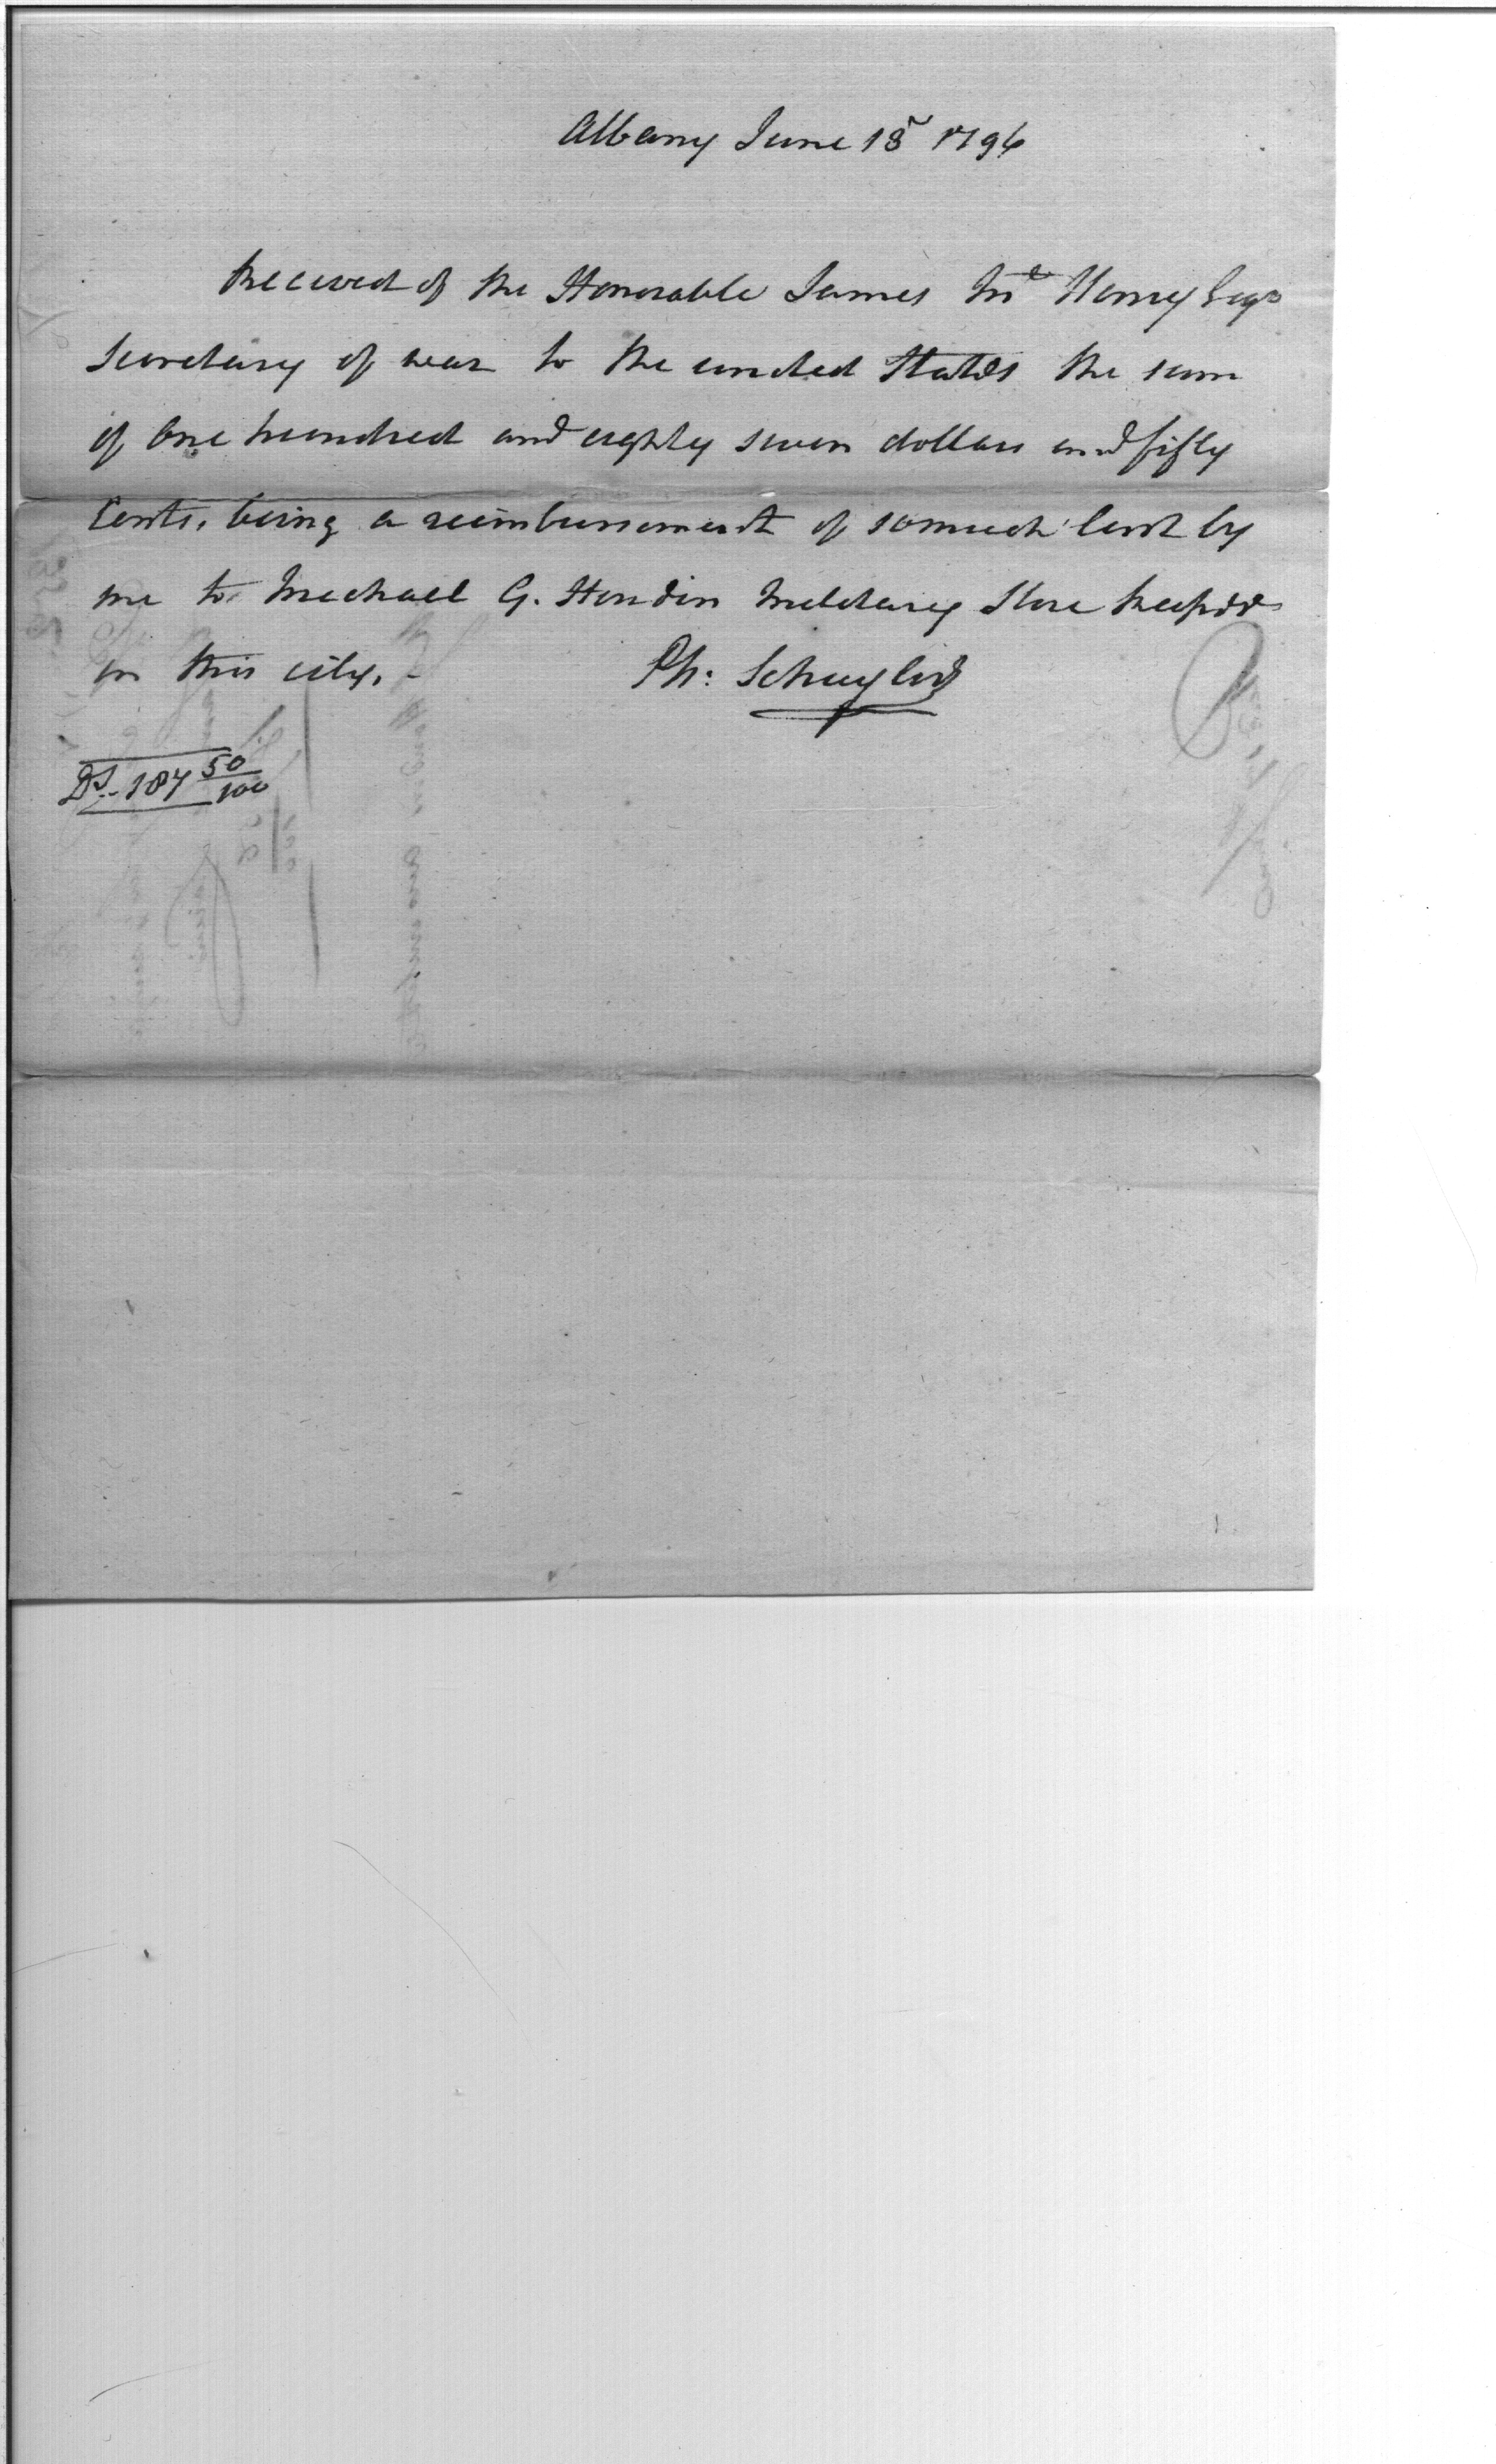 Albany June 18 1796
Received of the Honorable James Mc Henry Esqr
Secretary of war to the united States the sum
of one hundred and eighty seven dollars and fifty
Cents, being a reimbursement of somuch lent by
me to Michael G. Houdin Military Store keeper
in this city.
Ph: Schuyler
Ds.. 187 50/100